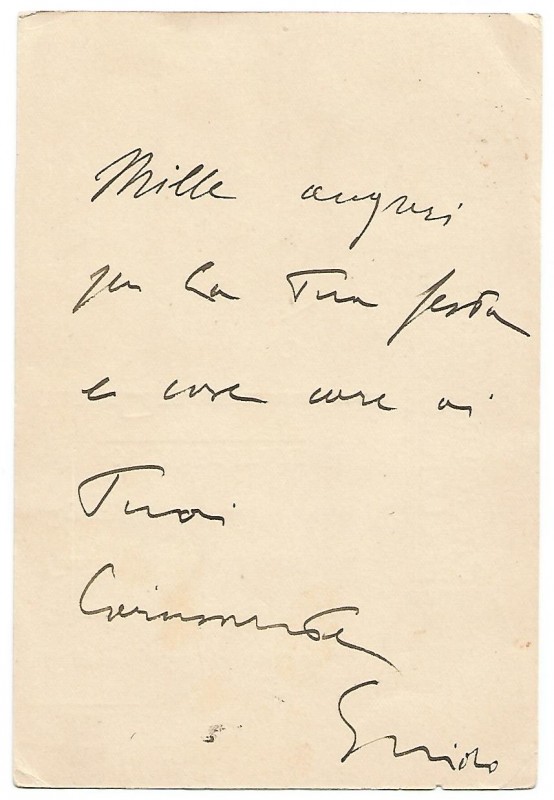 Mille auguri
per la Tua festa
e cose care ai
Tuoi
Carissimente
Guido